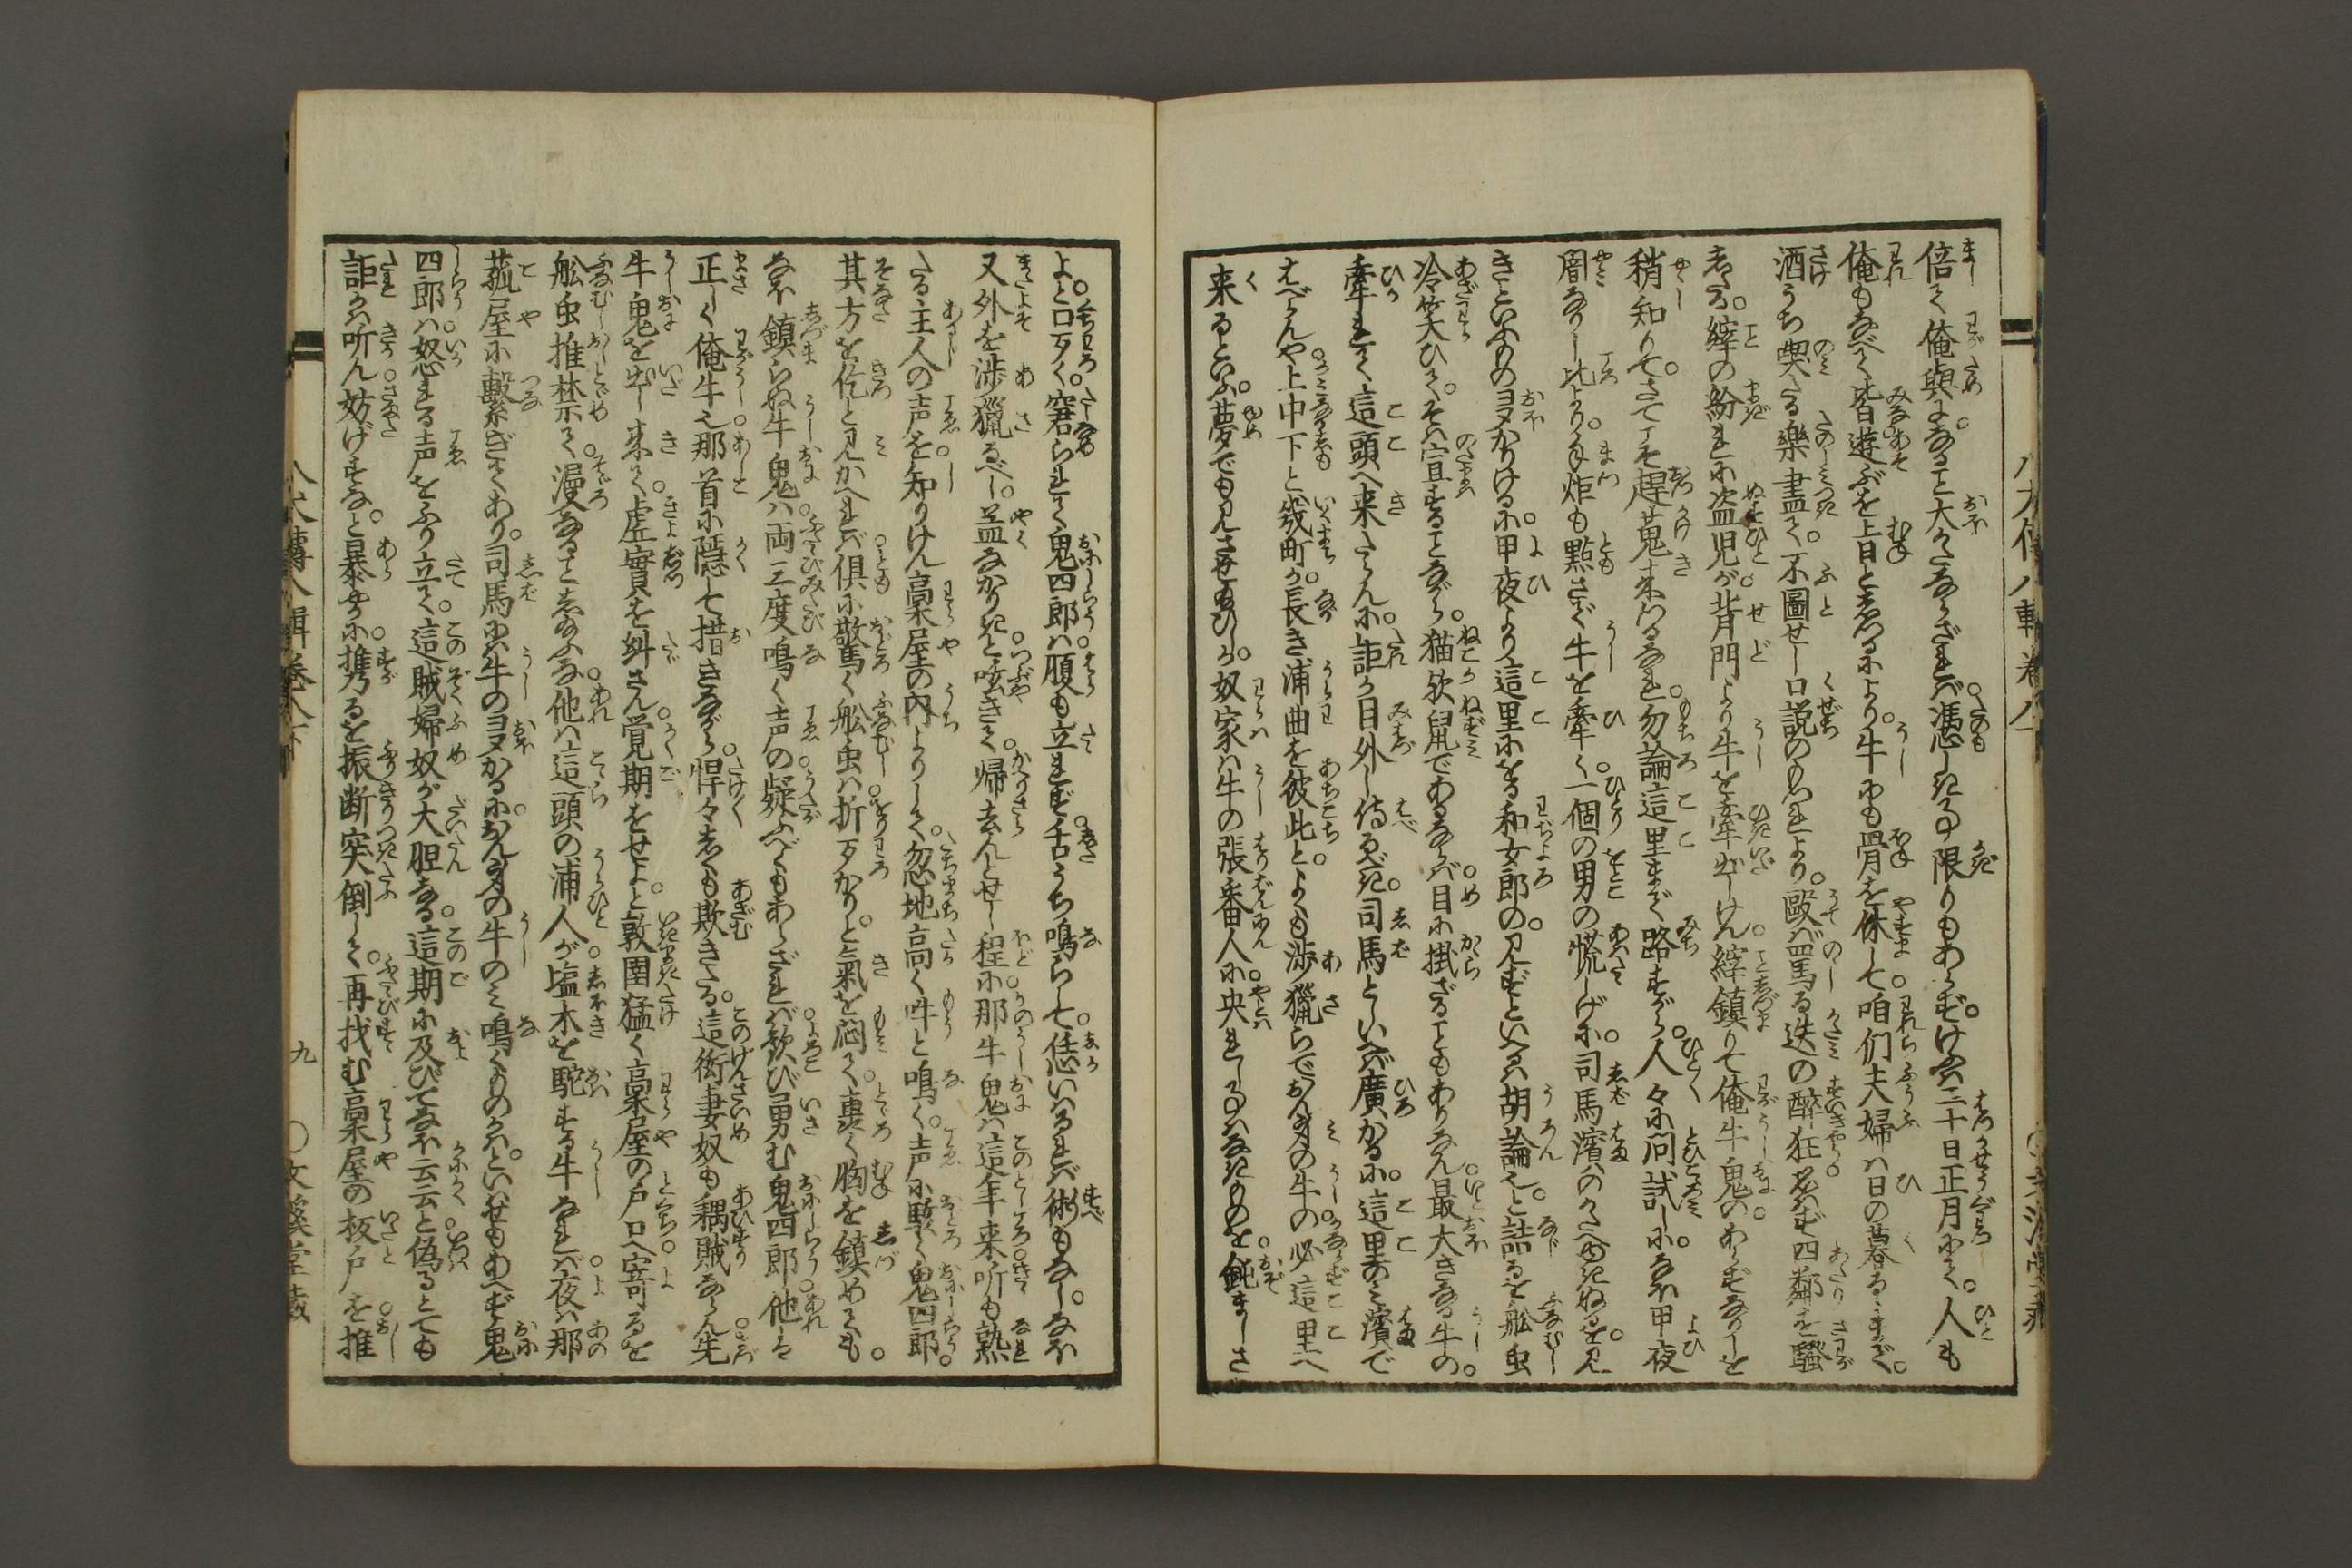 倍て俺與になること大かたならざれば憑しき事限りもあらずけふは二十日正月にて人も
俺もなべて皆遊ぶを上日とすなるにより牛にも骨を休して咱们夫婦は日の暮るまで
酒うち喫たる樂盡て不圖せし口説のもつれより毆ば罵る迭の醉狂すはとて四鄰を騷
したる縡の紛れに盗児が背門より牛を牽出しけん縡鎮りて俺牛鬼のあらずなりしを
稍知りてさてこそ趕蒐來つるなれ勿論這里まで路すがら人々に問試しになほ甲夜
闇なりし比より炬も點さで牛を牽く一個の男の慌しげに司馬濱のかたへゆきぬるを見
きといふもの多かりけるに甲夜より這里にをる和女郎の見ずといへるは胡論也と詰るを舩虫
冷笑ひてそは宣することながら猫欤鼠であるならば目に掛ざることもありなん最大きなる牛の
牽れて這頭へ来たらんに誰か目外し侍るべき司馬といへば廣かるに這里のみ濱で
はべらんや上中下と幾町か長き浦曲を彼此とよくも渉獵らでおん身の牛の必這里へ
来るといふ夢でも見させ給ひしか奴家は牛の張番人に央れし事はなきものを鈍ましさ
よと口歹く窘られて鬼四郎は腹も立れず舌うち鳴らして恁いはるれば術もなしなほ
又外を渉獵るべし益なかりきと呟きて帰去んとせし程に那牛鬼は這年来听も熟
たる主人の声を知りけん稾屋の内よりして忽地高く吽と鳴く声に駭く鬼四郎
其方を佶と見かへれば倶に驚く舩虫は折歹かりと氣を悶て轟く胸を鎮めても
なほ鎮らぬ牛鬼は両三度鳴く声の疑ふべくもあらざれば歓び勇む鬼四郎他は
正しく俺牛也那首に隠して措きながら悍々しくも欺きたる這衒妻奴も耦賊ならん先
牛鬼を出し来て虚實を糾さん覚期をせよと敦圉猛く稾屋の戸口へ寄るを
舩虫推禁て漫なることし給ふな他は這頭の浦人が塩木を駝する牛なれば夜は那
菰屋に繋ぎてあり司馬には牛の多かるにおん身の牛のみ鳴くものかはといはせもあへず鬼
四郎は怒れる声をふり立て這賊婦奴が大胆なる這期に及びてなほ云云と偽るとても
誰かは听ん妨げすなと暴やかに携るを振断突倒して再找む稾屋の板戸を推
九